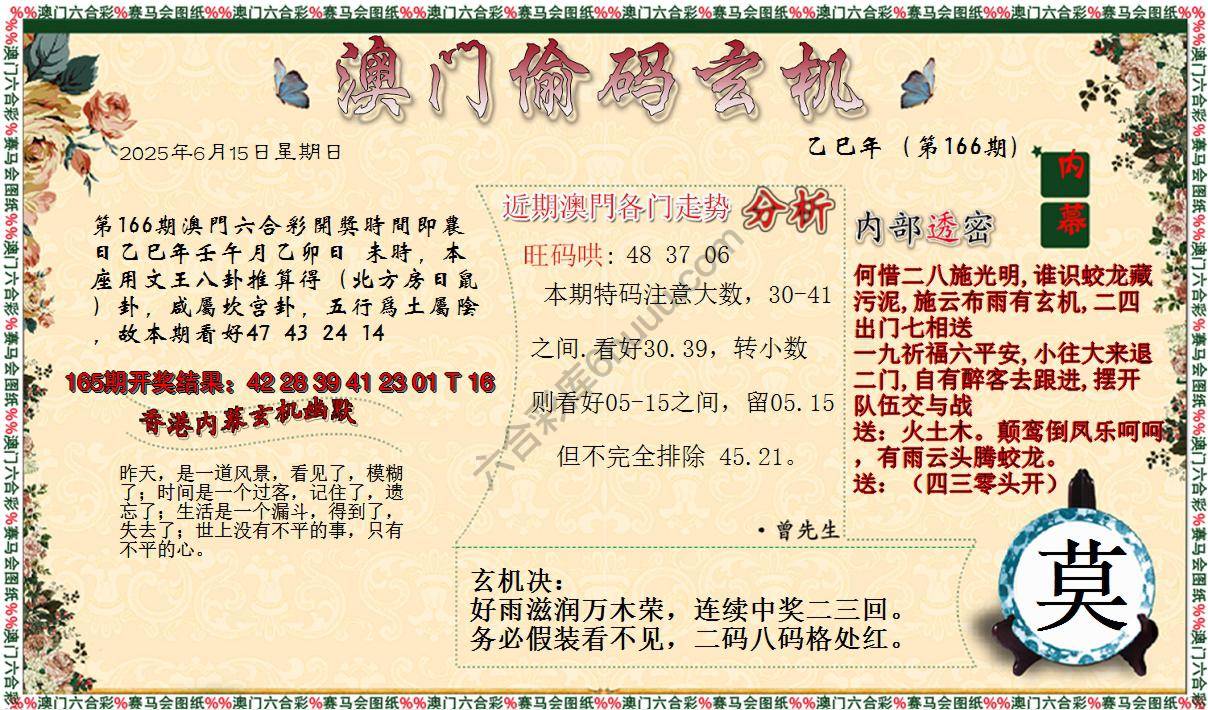 %%澳门六合彩%赛马会图纸%%澳门六合彩%赛马会图纸%%澳门六合彩%赛马会图纸%%澳门六合彩%赛马会图纸%%澳门六合彩%赛马会图纸%%
澳门偷码玄机
2025年6月15日星期日
乙巳年（第166期）
内幕
第166期澳門六合彩開獎時間即農
日乙巳年壬午月乙卯日 未時，本
座用文王八卦推算得（北方房日鼠
）卦，咸屬坎宫卦，五行爲土屬陰
，故本期看好47 43 24 14
165期开奖结果：42 28 39 41 23 01 T 16
香港内幕玄机幽默
昨天，是一道风景，看见了，模糊
了；时间是一个过客，记住了，遗
忘了；生活是一个漏斗，得到了，
失去了；世上没有不平的事，只有
不平的心。
近期澳門各门走势 分析
旺码哄：48 37 06
本期特码注意大数，30-41
之间.看好30.39，转小数
则看好05-15之间，留05.15
但不完全排除 45.21。
·曾先生
内部透密
何惜二八施光明,谁识蛟龙藏
污泥,施云布雨有玄机,二四
出门七相送
一九祈福六平安,小往大来退
二门,自有醉客去跟进,摆开
队伍交与战
送：火土木。颠鸾倒凤乐呵呵
，有雨云头腾蛟龙。
送：（四三零头开）
玄机决：
好雨滋润万木荣，连续中奖二三回。
务必假装看不见，二码八码格处红。
莫
%%澳门六合彩%赛马会图纸%%澳门六合彩%赛马会图纸%%澳门六合彩%赛马会图纸%%澳门六合彩%赛马会图纸%%澳门六合彩%赛马会图纸%%